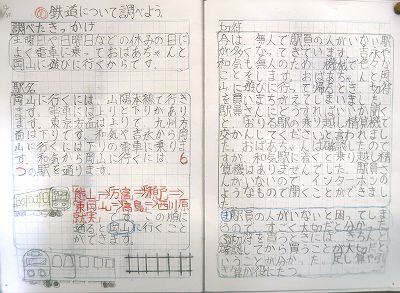 ㋱鉄道について調べよう。
調べたきっかけ
土曜日や日曜日などの休みの日に
よく電車に乗っておばあちゃんと
岡山に遊びに行くからです。
駅名
岡山に行くには、山陽本線で行き
ます。電車には上りと下りがあり
ます。東京方面は上りで、九州方
面は下りです。和気で吉永から岡
山に行くには下りの電車に乗りま
す。和気から岡山に行くには、6
つの駅を通ります。
熊山⇒万富⇒瀬戸⇒
東岡山⇒高島⇒西川原
就実 この順に
通ると岡山に行くこと
ができます。
切符
今は、無人で駅員の人がいない駅
が多くなってきています。吉永や
和気も無人のため、機械で
ことをします。おばあちゃんと岡
山に遊びに行って帰るとき、切符
を買いまちがえてしまいました。
駅員の人に
りる駅の乗りこし精算機で
交かんしてくださいと言われまし
た。おばあちゃんは確認したので
すが、和気駅に着くと乗り越し精算
機はありませんでした。駅員さ
んがいないので、インターホンの
ようなもので聞くことができまし
た。
駅員の人がいないと困ってしま
うので、すごく大切だと分かった。
切符を買うときには
確認してから買うことが大切だと
いうことが分かった。足し算やひ
き算が役にたつ。